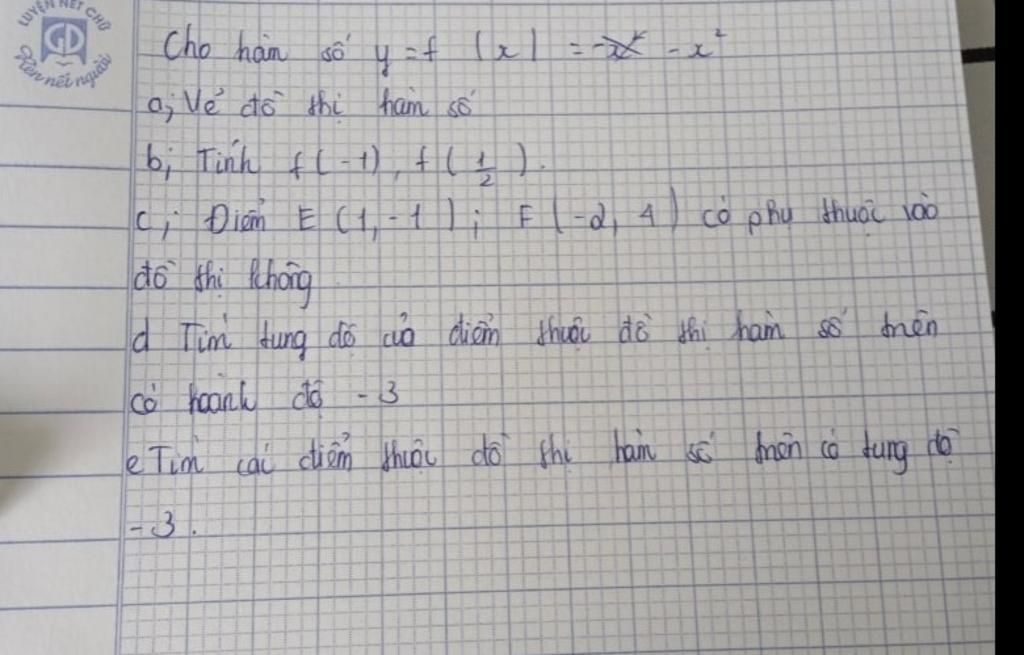 LUYỆN NÉT CHỮ
GD
Rèn nết người
Cho hàn số y = f (x) = - x²
a; Vẽ đồ thị hàm số
b; Tính f(-1), f(1/2).
c; Điểm E (1, -1); F (-2, 4) có phụ thuộc vào
đồ thị không
d Tìm tung độ của điểm thuộc đồ thị hàm số trên
có hoành độ -3
e Tìm các điểm thuộc đồ thị hàm số trên có tung độ
-3.